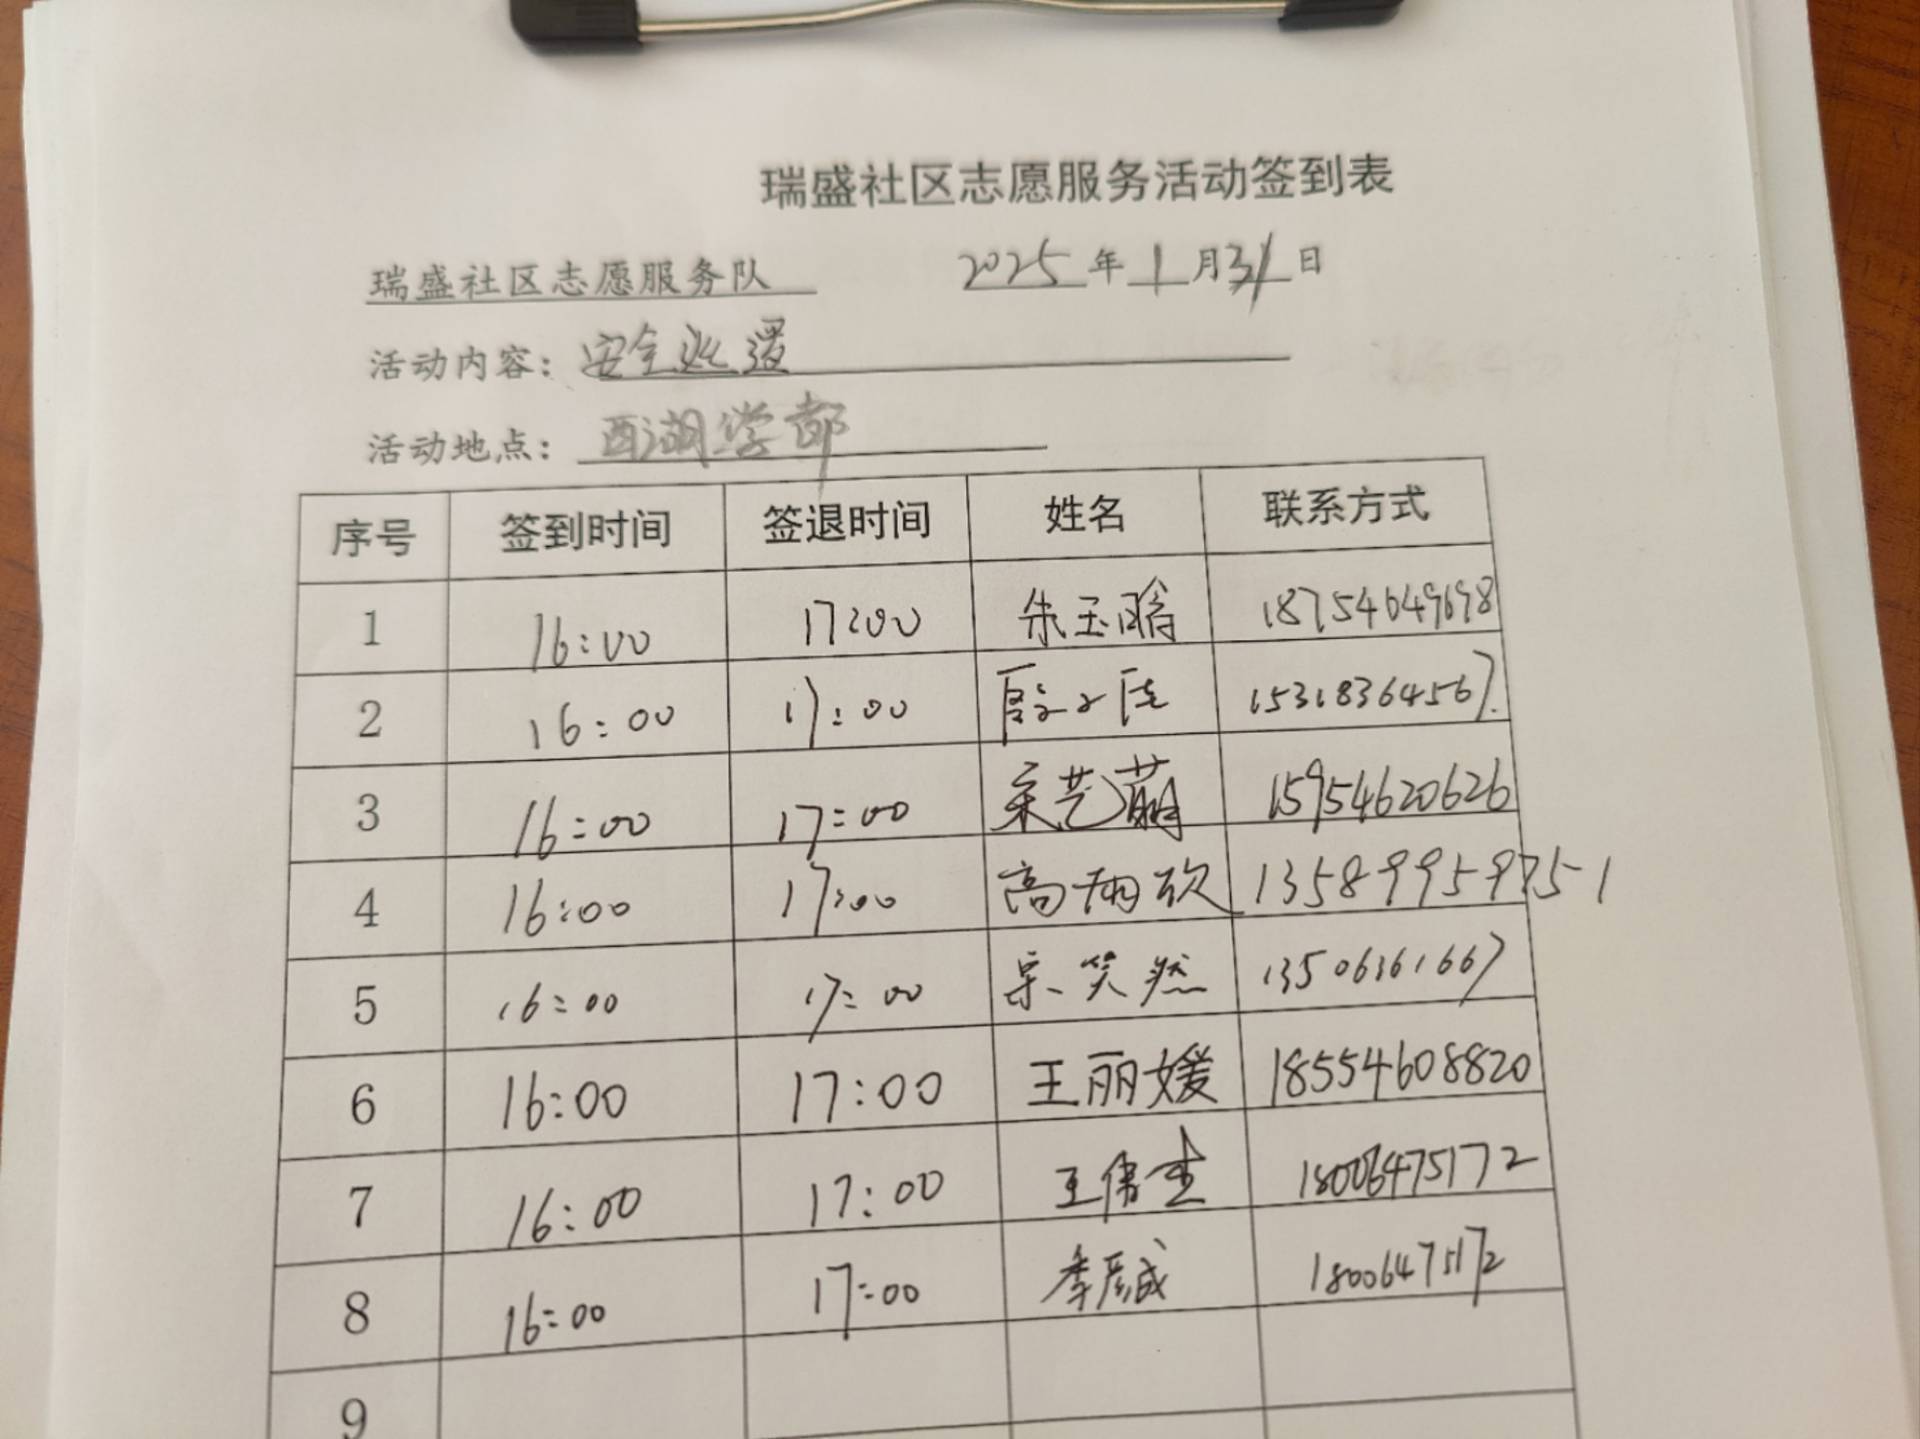 瑞盛社区志愿服务活动签到表
瑞盛社区志愿服务队 2025年1月31日
活动内容：安全巡逻
活动地点：西湖学都
序号 签到时间 签退时间 姓名 联系方式
1 16:00 17:00 朱玉 18754649698
2 16:00 17:00 15318364567
3 16:00 17:00 宋艺萌 15954620626
4 16:00 17:00 高翔欣 13589959751
5 16:00 17:00 宗笑然 13506361667
6 16:00 17:00 王丽媛 18554608820
7 16:00 17:00 王伟 18006475172
8 16:00 17:00 季彦成 18006475172
9